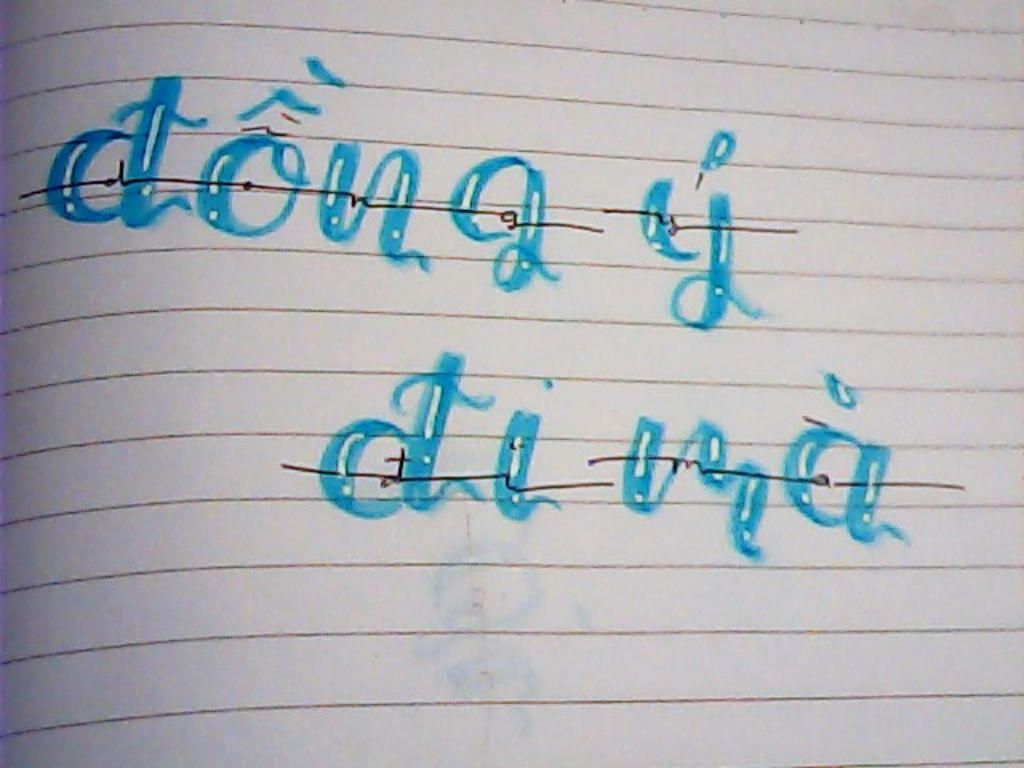 đồng ý
đi mà